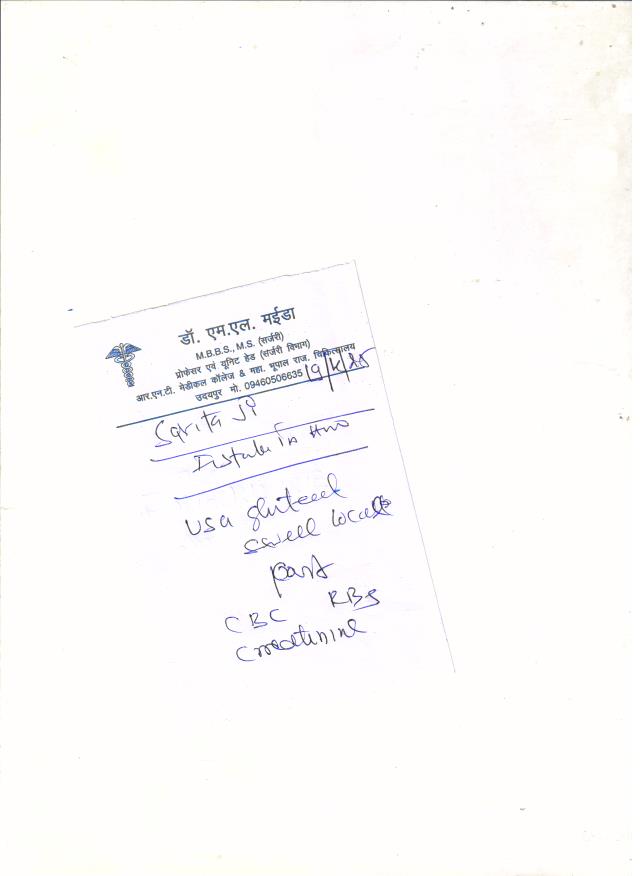 डॉ. एम.एल. मईडा
M.B.B.S., M.S. (सर्जरी)
प्रोफेसर एवं यूनिट हेड (सर्जरी विभाग)
आर.एन.टी. मेडीकल कॉलेज & महा. भूपाल राज. चिकित्सालय
उदयपुर मो. 09460506635
Sarita Ji
In
USG gluteal
swell local
part
CBC RBS
Creatinine